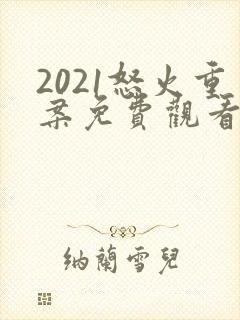 2021怒火重
案免費觀看
納蘭雪兒